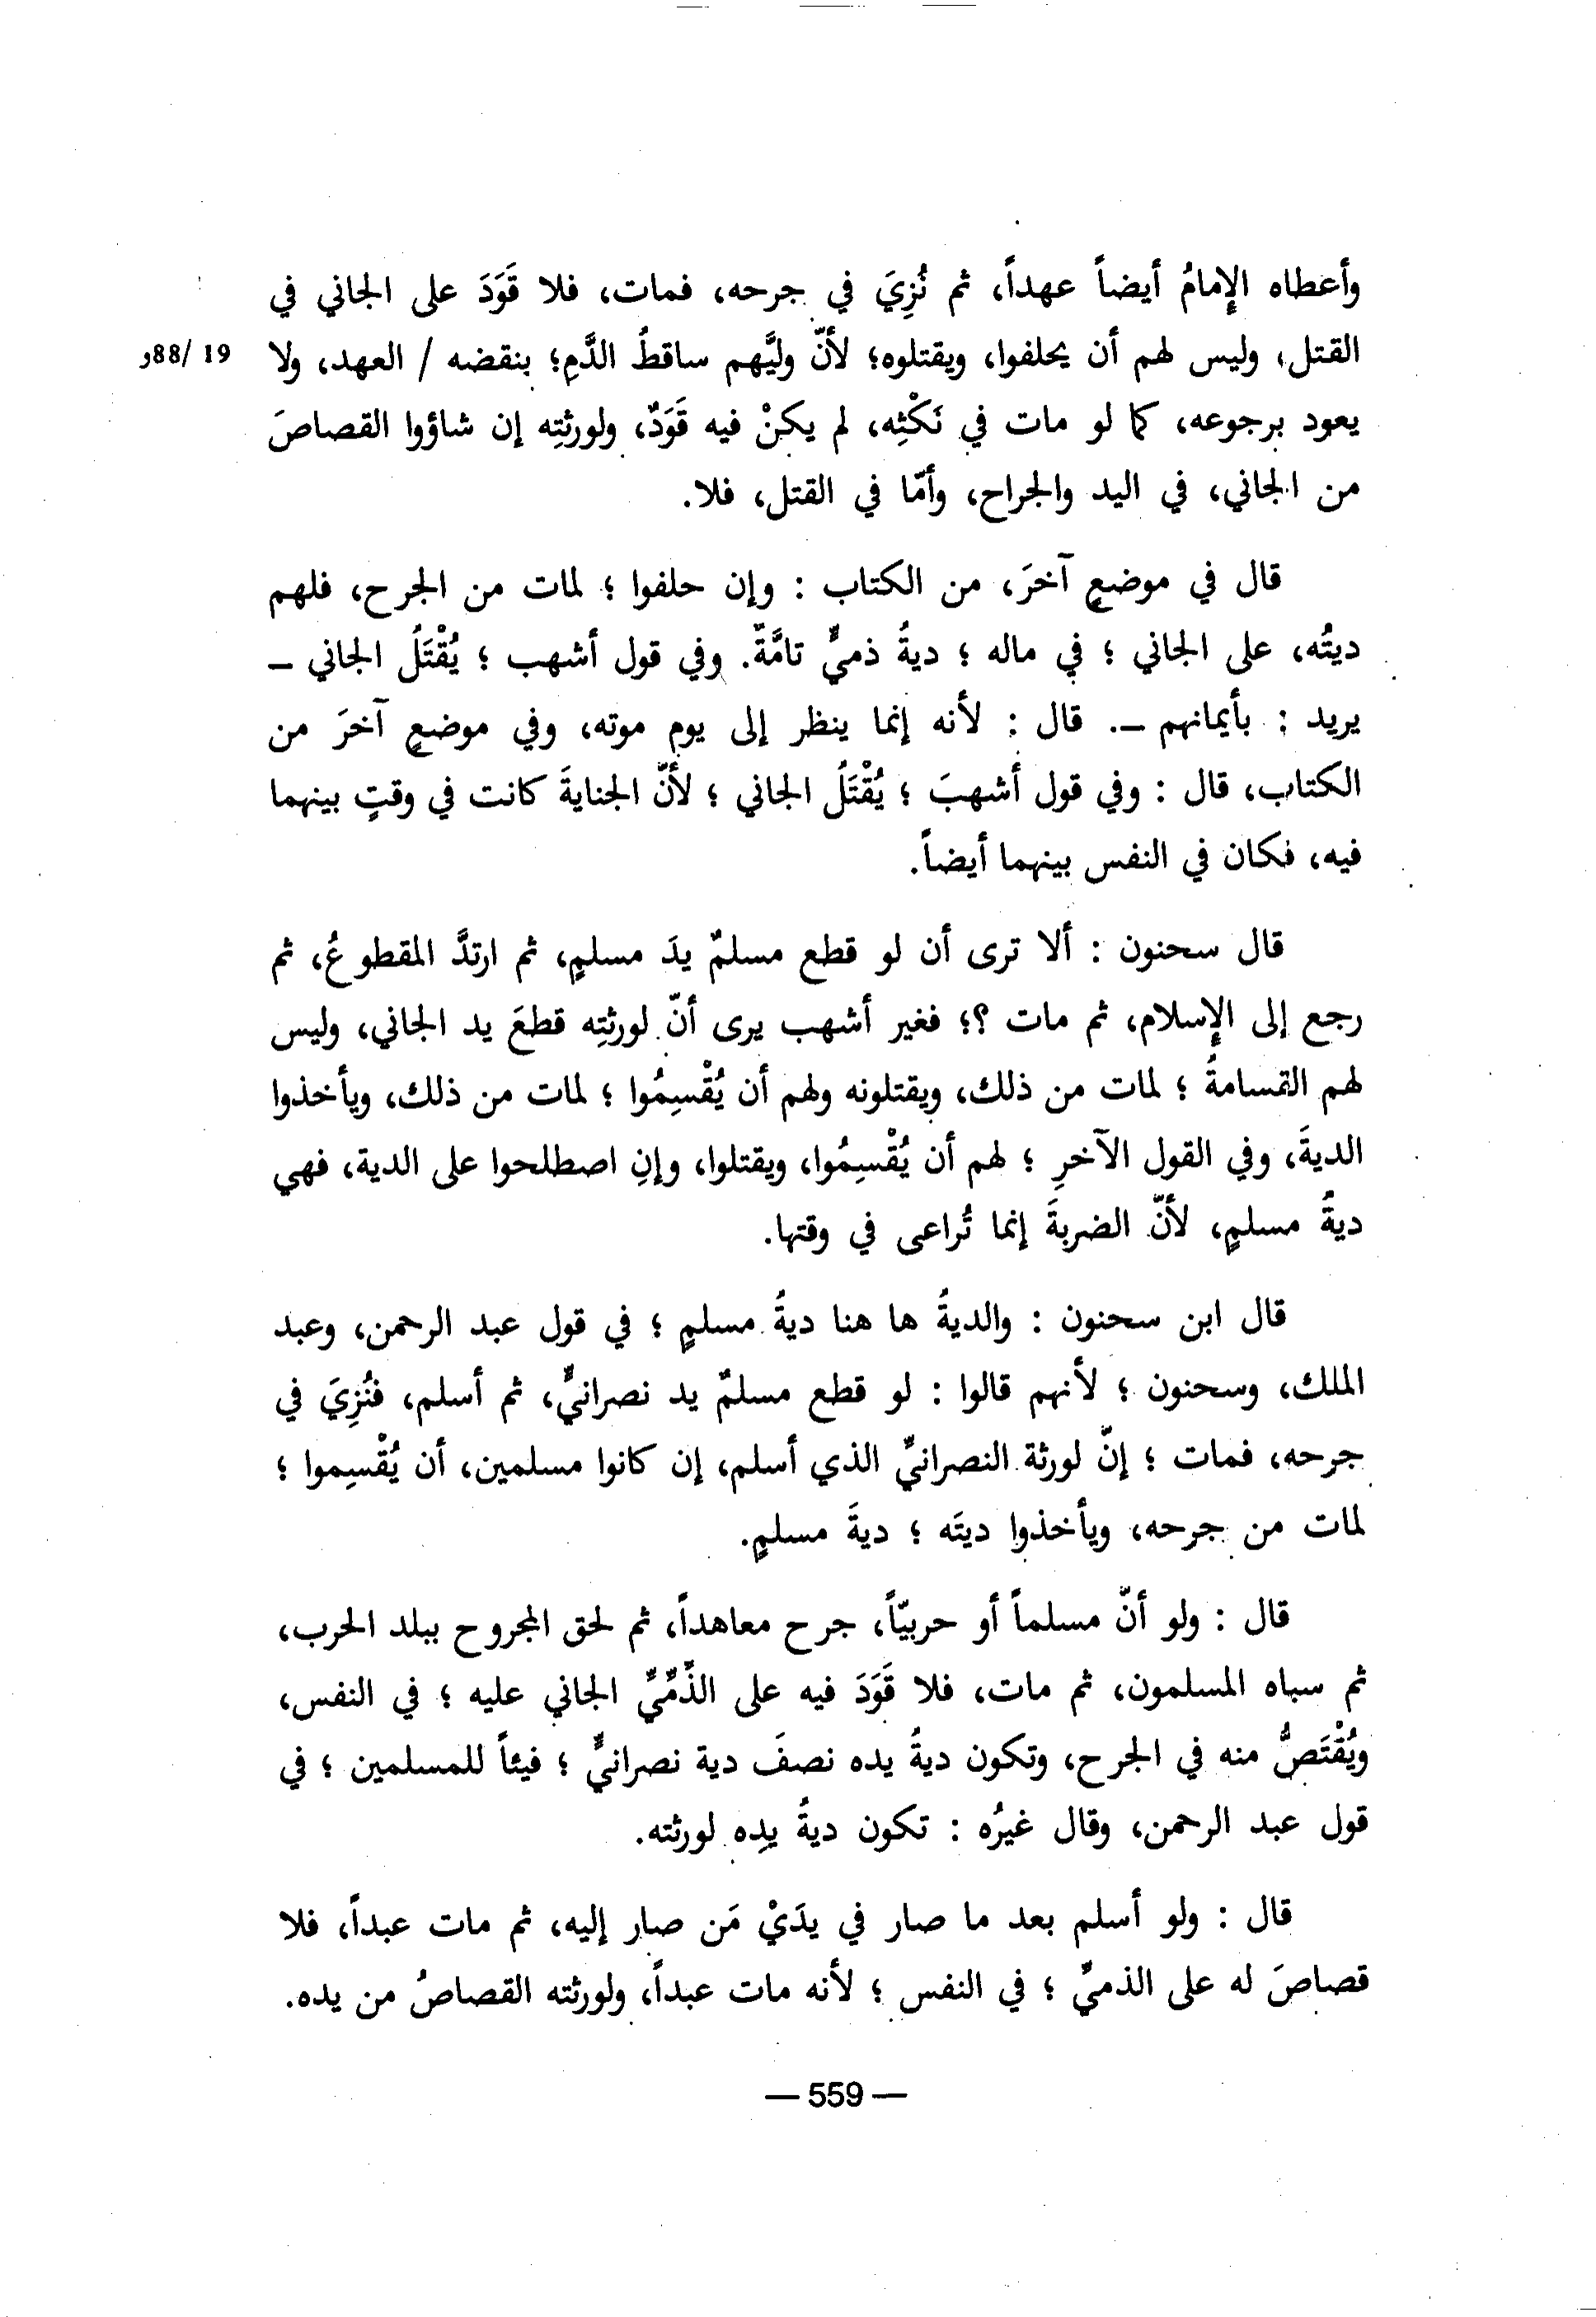 وأعطاه الإِمامُ أيضاً عهداً، ثم نُزِيَ في جرحه، فمات، فلا قَوَدَ على الجاني في
القتل، وليس لهم أن يحلفوا، ويقتلوه؛ لأنّ وليَّهم ساقطُ الدَّمِ؛ بنقضه / العهد، ولا 19 /88و
يعود برجوعه، كما لو مات في نَكْثِه، لم يكنْ فيه قَوَدٌ، ولورثتِه إن شاؤوا القصاصَ
من الجاني، في اليد والجراح، وأمّا في القتل، فلا.
قال في موضعٍ آخرَ، من الكتاب : وإن حلفوا ؛ لمات من الجرح، فلهم
ديتُه، على الجاني ؛ في ماله ؛ ديةُ ذميٍّ تامَّةٌ. وفي قول أشهب ؛ يُقْتَلُ الجاني –
يريد : بأيمانهم –. قال : لأنه إنما ينظر إلى يوم موته، وفي موضعٍ آخرَ من
الكتاب، قال : وفي قول أشهبَ ؛ يُقْتَلُ الجاني ؛ لأنّ الجنايةَ كانت في وقتٍ بينهما
فيه، فكان في النفس بينهما أيضاً.
قال سحنون : ألا ترى أن لو قطع مسلمٌ يدَ مسلمٍ، ثم ارتدَّ المقطوعُ، ثم
رجع إلى الإِسلام، ثم مات ؟؛ فغير أشهب يرى أنّ لورثتِه قطعَ يد الجاني، وليس
لهم القسامةُ ؛ لمات من ذلك، ويقتلونه ولهم أن يُقْسِمُوا ؛ لمات من ذلك، ويأخذوا
الديةَ، وفي القول الآخرِ ؛ لهم أن يُقْسِمُوا، ويقتلوا، وإنِ اصطلحوا على الدية، فهي
ديةُ مسلمٍ، لأنّ الضربةَ إنما تُراعى في وقتها.
قال ابن سحنون : والديةُ ها هنا ديةُ مسلمٍ ؛ في قول عبد الرحمن، وعبد
الملك، وسحنون ؛ لأنهم قالوا : لو قطع مسلمٌ يد نصرانيٍّ، ثم أسلم، فنُزِيَ في
جرحه، فمات ؛ إنّ لورثة النصرانيِّ الذي أسلم، إن كانوا مسلمين، أن يُقْسِموا ؛
لمات من جرحه، ويأخذوا ديتَه ؛ ديةَ مسلمٍ.
قال : ولو أنّ مسلماً أو حربيّاً، جرح معاهداً، ثم لحق المجروح ببلد الحرب،
ثم سباه المسلمون، ثم مات، فلا قَوَدَ فيه على الذِّمِّيِّ الجاني عليه ؛ في النفس،
ويُقْتَصُّ منه في الجرح، وتكون ديةُ يده نصفَ دية نصرانيٍّ ؛ فيئاً للمسلمين ؛ في
قول عبد الرحمن، وقال غيرُه : تكون ديةُ يدِه لورثته.
قال : ولو أسلم بعد ما صار في يدَيْ مَن صار إليه، ثم مات عبداً، فلا
قصاصَ له على الذميِّ ؛ في النفس ؛ لأنه مات عبداً، ولورثته القصاصُ من يده.
— 559 —